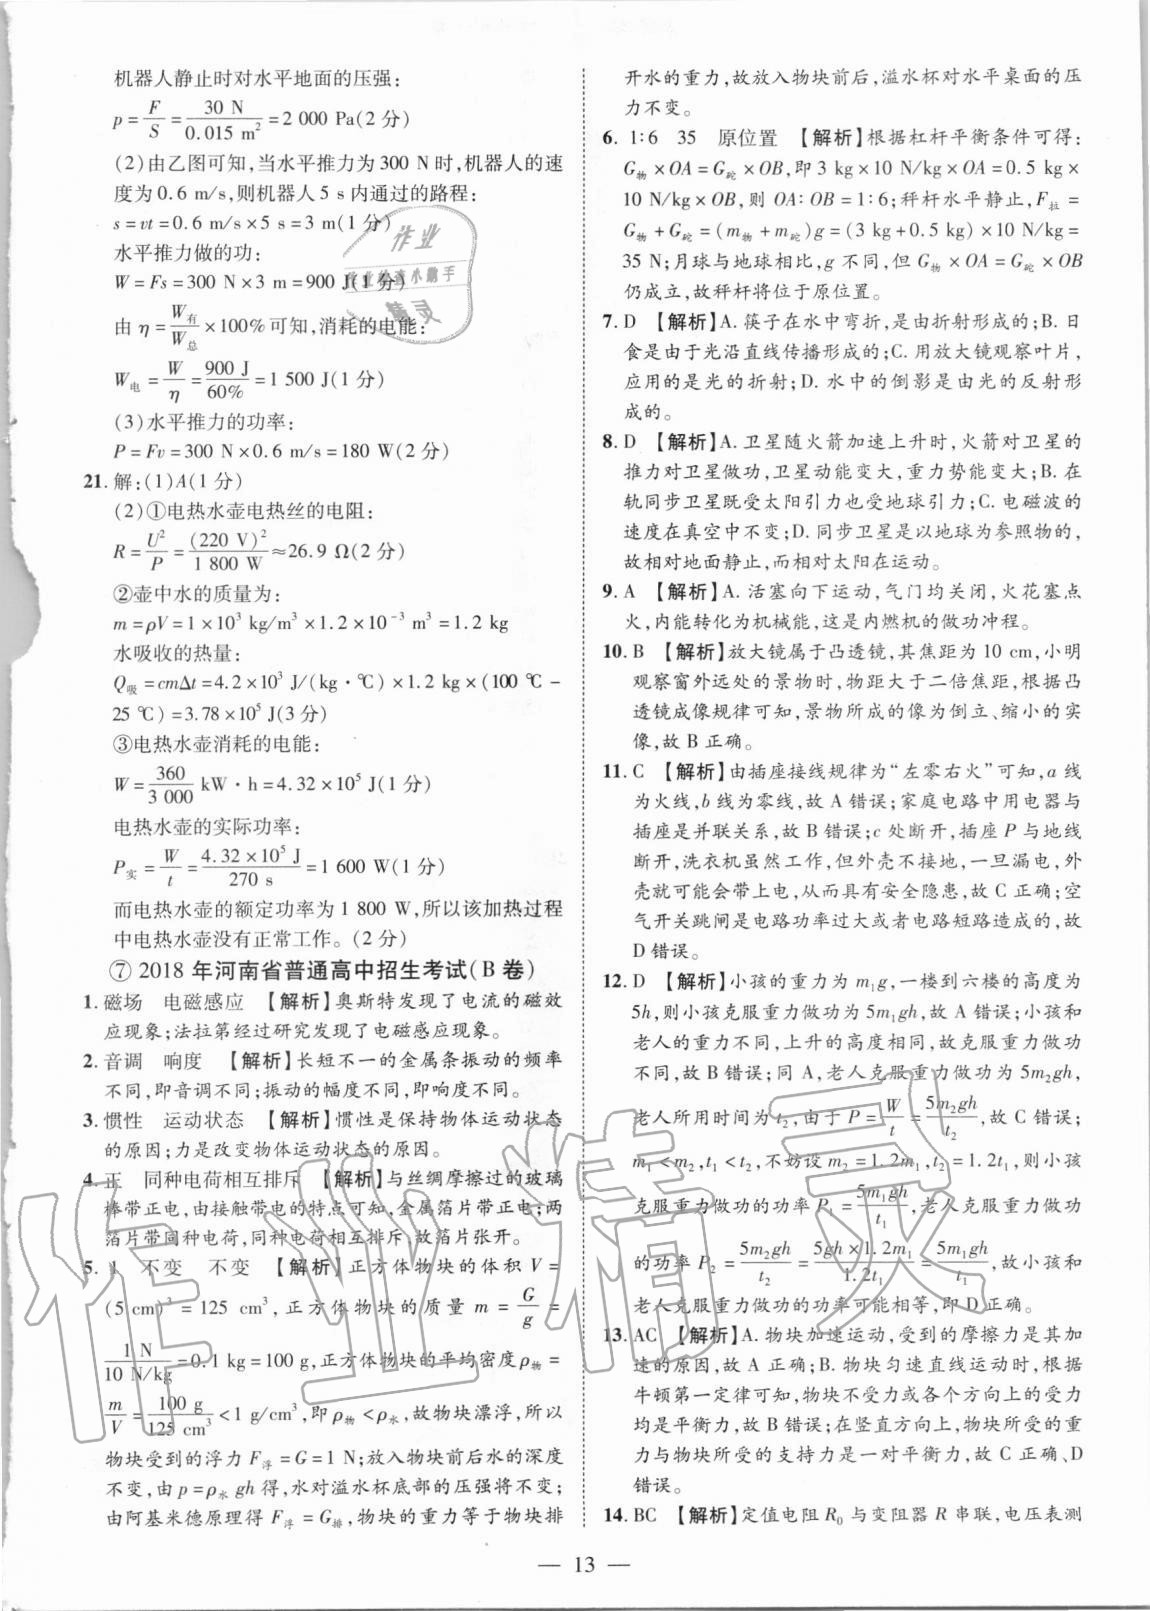 机器人静止时对水平地面的压强:
p=F/S=30 N/0.015 m²=2 000 Pa(2 分)
(2)由乙图可知,当水平推力为 300 N 时,机器人的速
度为 0.6 m/s,则机器人 5 s 内通过的路程:
s=vt=0.6 m/s×5 s=3 m(1 分)
水平推力做的功:
W=Fs=300 N×3 m=900 J(1 分)
由 η=W有/W总×100%可知,消耗的电能:
W电=W/η=900 J/60%=1 500 J(1 分)
(3)水平推力的功率:
P=Fv=300 N×0.6 m/s=180 W(2 分)
21.解:(1)A(1 分)
(2)①电热水壶电热丝的电阻:
R=U²/P=(220 V)²/1 800 W≈26.9 Ω(2 分)
②壶中水的质量为:
m=ρV=1×10³ kg/m³×1.2×10⁻³ m³=1.2 kg
水吸收的热量:
Q吸=cmΔt=4.2×10³ J/(kg·℃)×1.2 kg×(100 ℃-
25 ℃)=3.78×10⁵ J(3 分)
③电热水壶消耗的电能:
W=360/3 000 kW·h=4.32×10⁵ J(1 分)
电热水壶的实际功率:
P实=W/t=4.32×10⁵ J/270 s=1 600 W(1 分)
而电热水壶的额定功率为 1 800 W,所以该加热过程
中电热水壶没有正常工作。(2 分)
⑦ 2018 年河南省普通高中招生考试(B 卷)
1.磁场 电磁感应 【解析】奥斯特发现了电流的磁效
应现象;法拉第经过研究发现了电磁感应现象。
2.音调 响度 【解析】长短不一的金属条振动的频率
不同,即音调不同;振动的幅度不同,即响度不同。
3.惯性 运动状态 【解析】惯性是保持物体运动状态
的原因;力是改变物体运动状态的原因。
4.正 同种电荷相互排斥 【解析】与丝绸摩擦过的玻璃
棒带正电,由接触带电的特点可知,金属箔片带正电;两
箔片带同种电荷,同种电荷相互排斥,故箔片张开。
5.1 不变 不变 【解析】正方体物块的体积 V=
(5 cm)³=125 cm³,正方体物块的质量 m=G/g=
1 N/10 N/kg=0.1 kg=100 g,正方体物块的平均密度ρ物=
m/V=100 g/125 cm³<1 g/cm³,即 ρ物<ρ水,故物块漂浮,所以
物块受到的浮力 F浮=G=1 N;放入物块前后水的深度
不变,由 p=ρ水gh 得,水对溢水杯底部的压强将不变;
由阿基米德原理得 F浮=G排,物块的重力等于物块排
开水的重力,故放入物块前后,溢水杯对水平桌面的压
力不变。
6.1∶6 35 原位置 【解析】根据杠杆平衡条件可得:
G物×OA=G砣×OB,即 3 kg×10 N/kg×OA=0.5 kg×
10 N/kg×OB,则 OA∶OB=1∶6;秤杆水平静止,F拉=
G物+G砣=(m物+m砣)g=(3 kg+0.5 kg)×10 N/kg=
35 N;月球与地球相比,g 不同,但 G物×OA=G砣×OB
仍成立,故秤杆将位于原位置。
7.D 【解析】A.筷子在水中弯折,是由折射形成的;B.日
食是由于光沿直线传播形成的;C.用放大镜观察叶片,
应用的是光的折射;D.水中的倒影是由光的反射形
成的。
8.D 【解析】A.卫星随火箭加速上升时,火箭对卫星的
推力对卫星做功,卫星动能变大,重力势能变大;B.在
轨同步卫星既受太阳引力也受地球引力;C.电磁波的
速度在真空中不变;D.同步卫星是以地球为参照物的,
故相对地面静止,而相对太阳在运动。
9.A 【解析】A.活塞向下运动,气门均关闭,火花塞点
火,内能转化为机械能,这是内燃机的做功冲程。
10.B 【解析】放大镜属于凸透镜,其焦距为 10 cm,小明
观察窗外远处的景物时,物距大于二倍焦距,根据凸
透镜成像规律可知,景物所成的像为倒立、缩小的实
像,故 B 正确。
11.C 【解析】由插座接线规律为“左零右火”可知,a 线
为火线,b 线为零线,故 A 错误;家庭电路中用电器与
插座是并联关系,故 B 错误;c 处断开,插座 P 与地线
断开,洗衣机虽然工作,但外壳不接地,一旦漏电,外
壳就可能会带上电,从而有安全隐患,故 C 正确;空
气开关跳闸是电路功率过大或者电路短路造成的,故
D 错误。
12.D 【解析】小孩的重力为 m₁g,一楼到六楼的高度为
5h,则小孩克服重力做功为 5m₁gh,故 A 错误;小孩和
老人的重力不同,上升的高度相同,故克服重力做功
不同,故 B 错误;同 A,老人克服重力做功为 5m₂gh,
老人所用时间为 t₂,由于 P=W/t=5m₂gh/t₂,故 C 错误;
m₁<m₂,t₁<t₂,不妨设 m₂=1.2m₁,t₂=1.2t₁,则小孩
克服重力做功的功率 P₁=5m₁gh/t₁,老人克服重力做功
的功率 P₂=5m₂gh/t₂=5gh×1.2m₁/1.2t₁=5m₁gh/t₁,故小孩和
老人克服重力做功的功率可能相等,即 D 正确。
13.AC 【解析】A.物块加速运动,受到的摩擦力是其加
速的原因,故 A 正确;B.物块匀速直线运动时,根据
牛顿第一定律可知,物块不受力或各个方向上的受力
均是平衡力,故 B 错误;在竖直方向上,物块所受的重
力与物块所受的支持力是一对平衡力,故 C 正确、D
错误。
14.BC 【解析】定值电阻 R₀ 与变阻器 R 串联,电压表测
— 13 —
作业
精灵
作业精灵